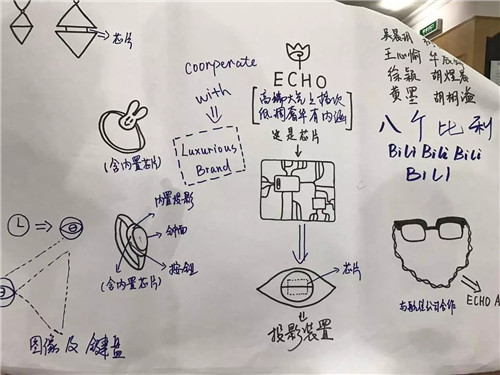 芯片
coorperate
with
Luxurious
Brand
ECHO
高端大气上档次
低调奢华有内涵
这是芯片
王心愉
徐颖 胡煜晨
黄墨
八个比利
Bili Bili Bili
BILI
(含内置芯片)
内置投影
钟面
按钮
(含内置芯片)
图像及键盘
芯片
投影装置
公司合作
ECHO A